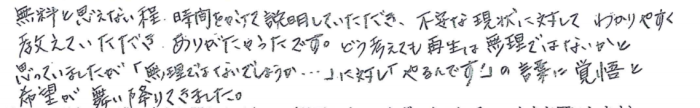 無料と思えない程、時間をかけて説明していただき、不安な現状に対して わかりやすく
教えていただき、ありがたかったです。どう考えても再生は無理ではないかと
思っていましたが「無理ではないでしょうか…」に対し「やるんです!」の言葉に覚悟と
希望が 舞い降りてきました。